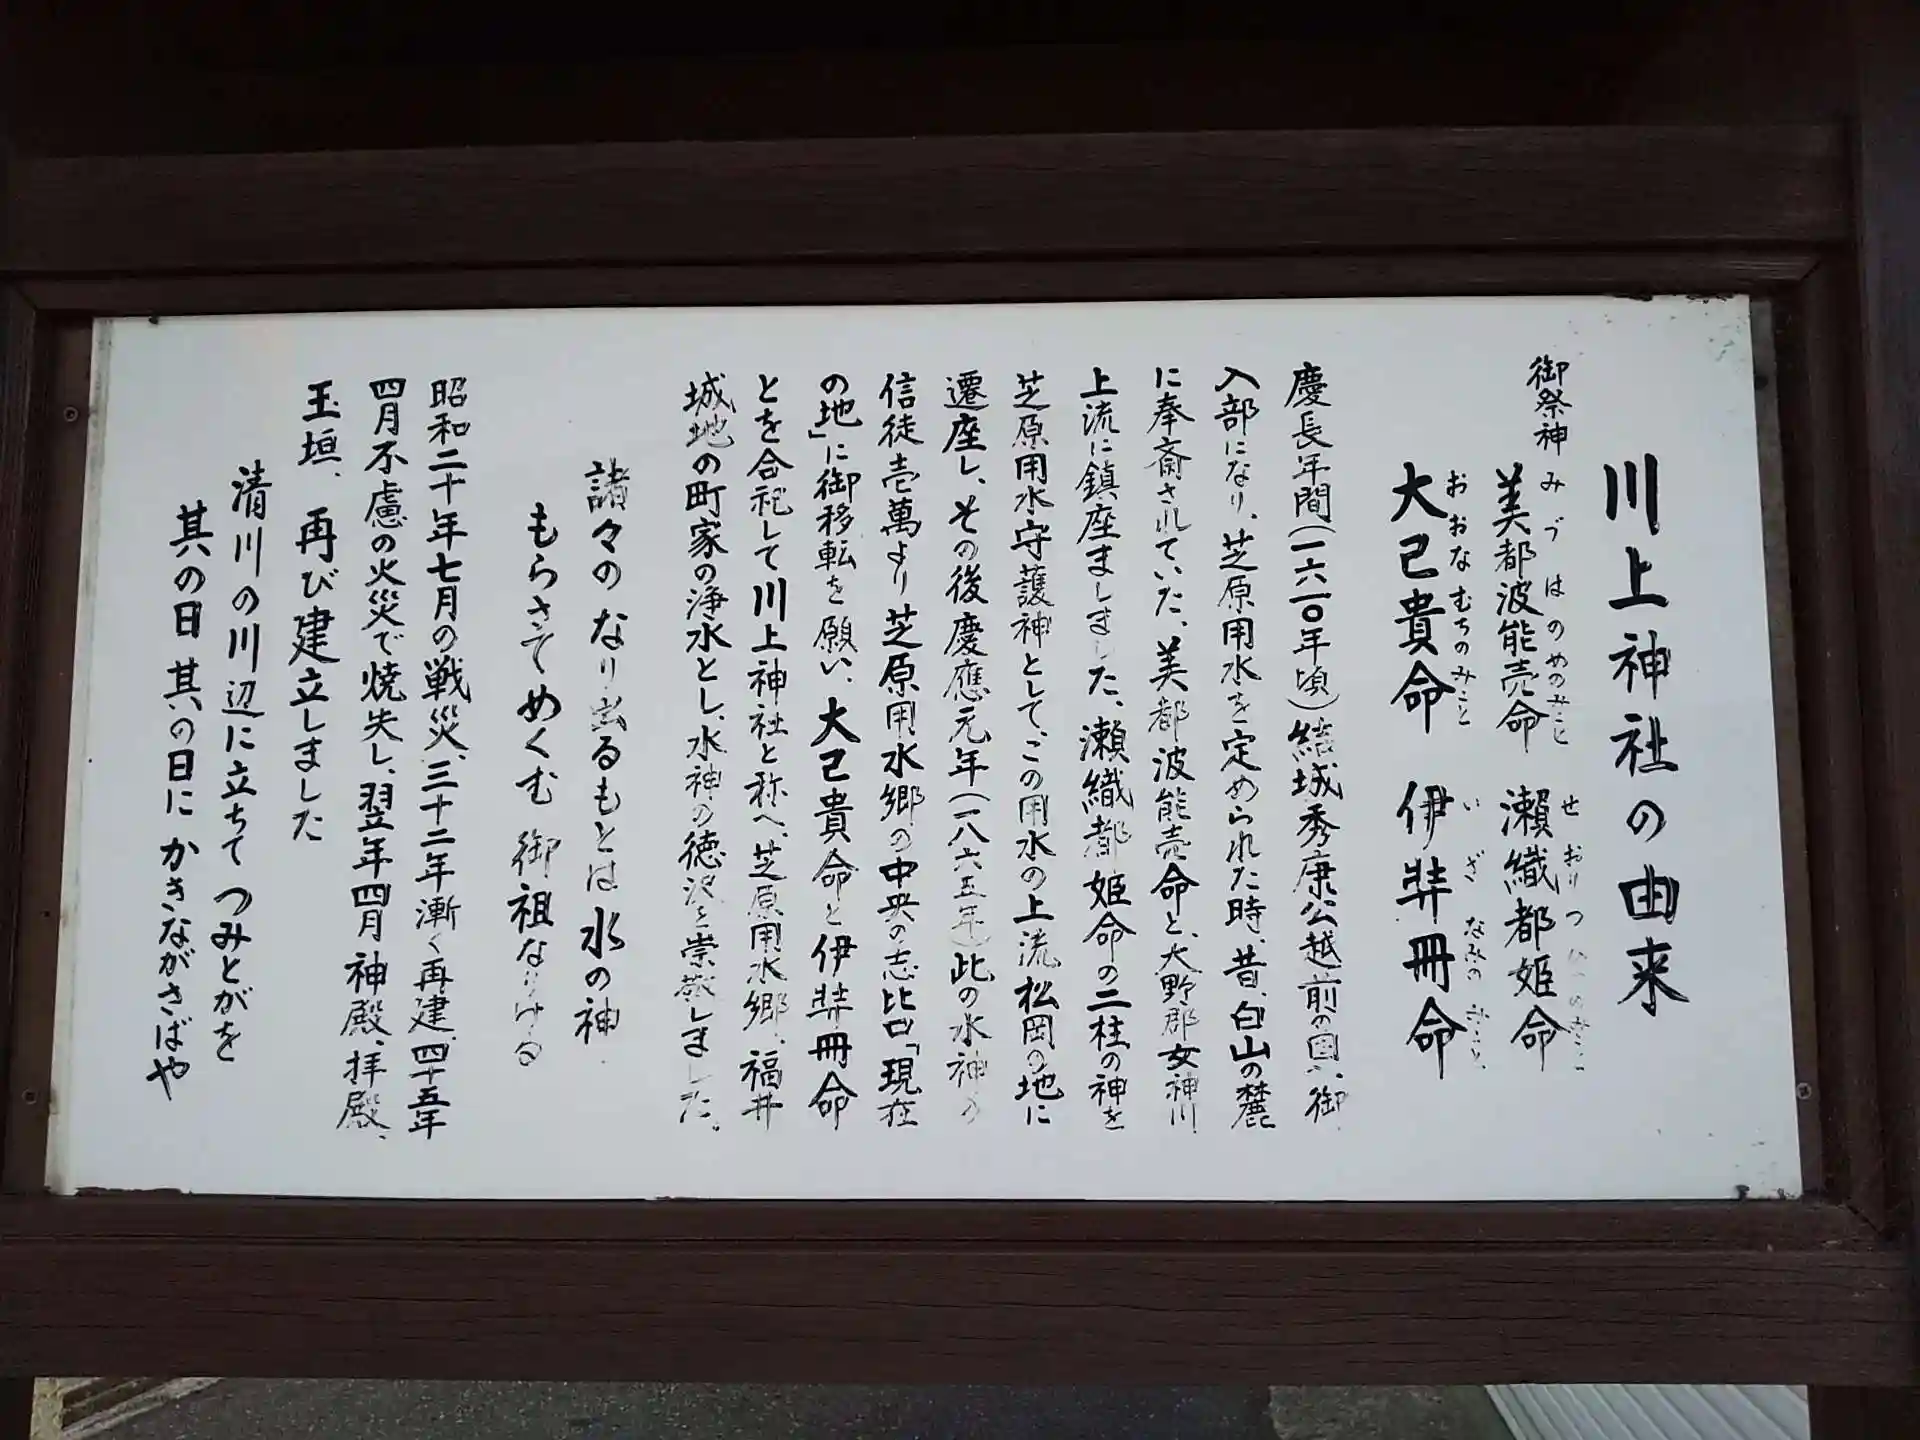 川上神社の由来
御祭神
みづはのめのみこと
美都波能売命
せおりつひめのみこと
瀬織都姫命
おおなむちのみこと
大己貴命
いざなみのみこと
伊弉冊命
慶長年間(一六一〇年頃)結城秀康公越前の国へ御
入部になり、芝原用水を定められた時、昔、白山の麓
に奉斎されていた、美都波能売命と、大野郡女神川
上流に鎮座ましました、瀬織都姫命の二柱の神を
芝原用水守護神として、この用水の上流松岡の地に
遷座し、その後慶應元年(一八六五年)此の水神の
信徒壱萬より芝原用水郷の中央の志比口「現在
の地」に御移転を願い、大己貴命と伊弉冊命
とを合祀して川上神社と称へ、芝原用水郷、福井
城地の町家の浄水とし、水神の徳沢を崇敬しました。
諸々のなり出るもとは水の神
もらさでめぐむ御祖なりける
昭和二十年七月の戦災、三十二年漸く再建、四十五年
四月不慮の火災で焼失し、翌年四月神殿、拝殿、
玉垣、再び建立しました
清川の川辺に立ちてつみとがを
其の日其の日にかきながさばや